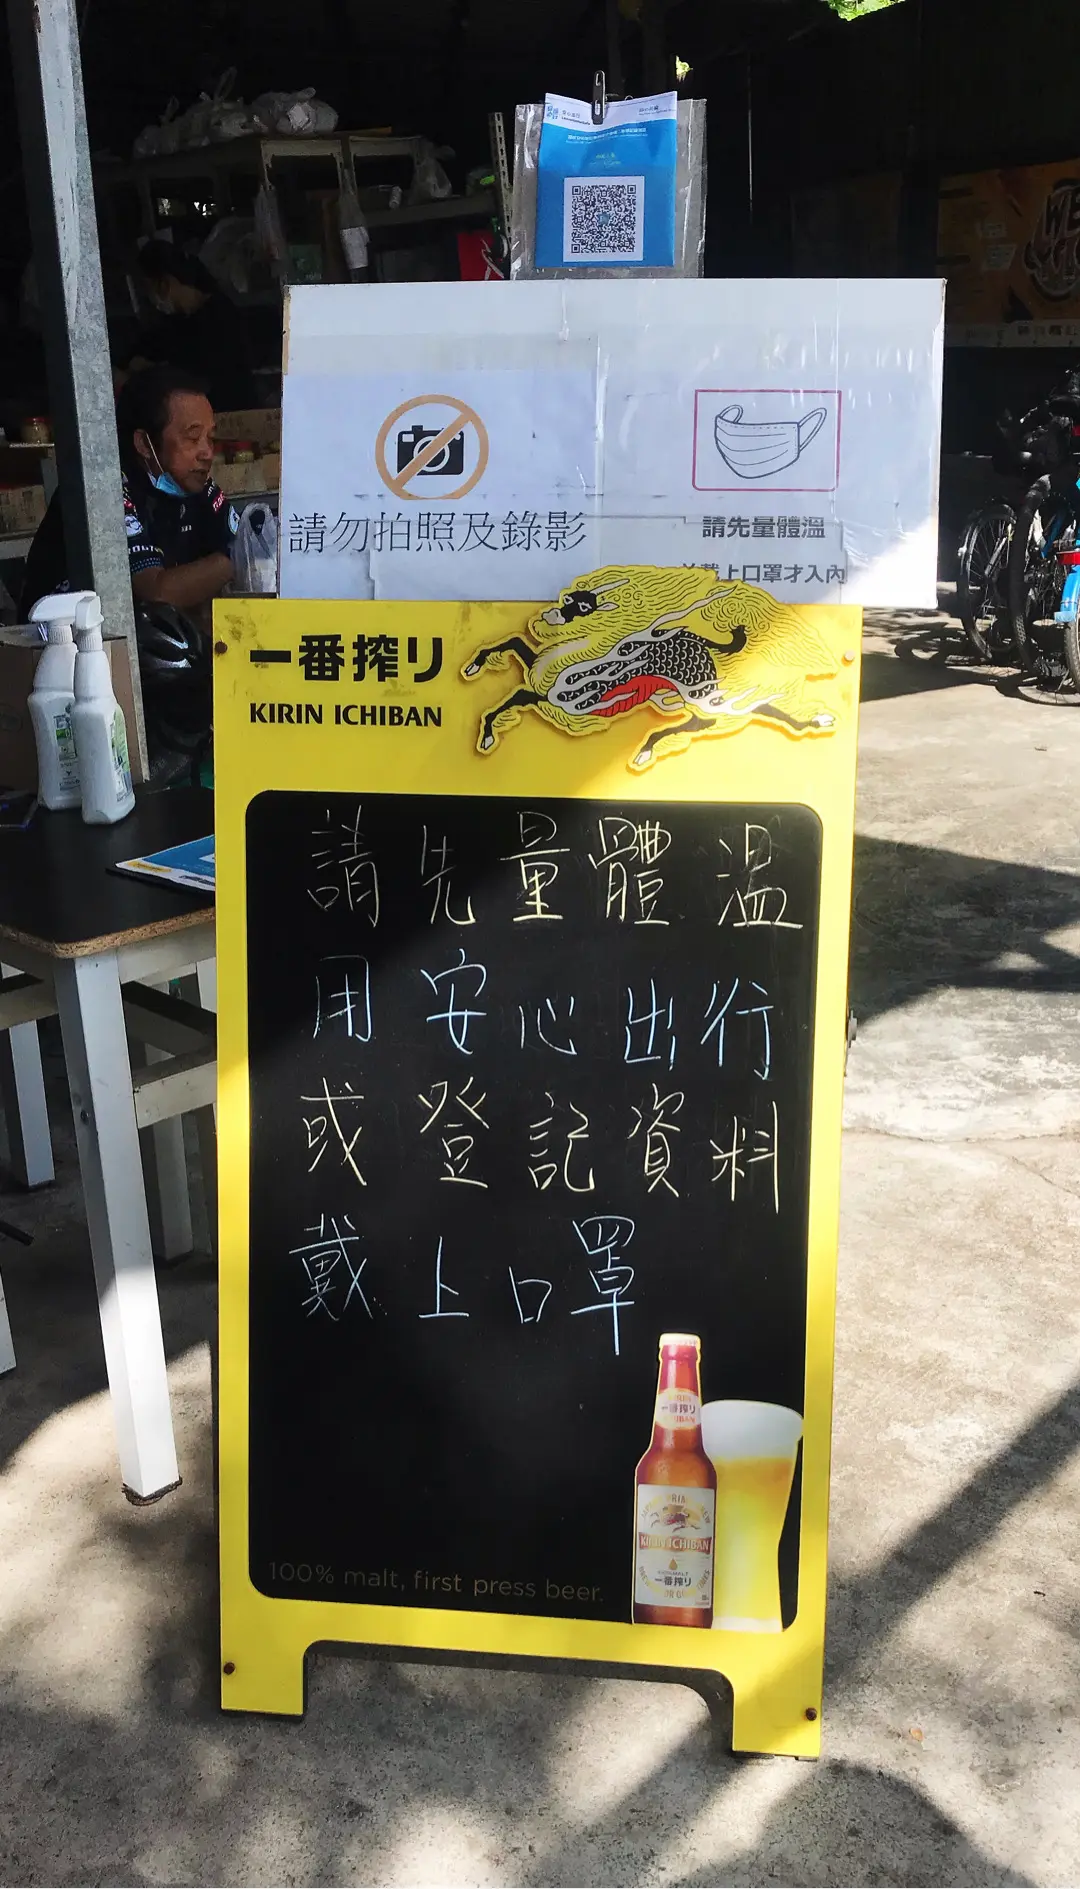 請勿拍照及錄影
請先量體溫
並戴上口罩才入內
一番搾り
KIRIN ICHIBAN
請先量體溫
用安心出行
或登記資料
戴上口罩
一番搾り
KIRIN ICHIBAN
一番搾り
100% malt, first press beer.